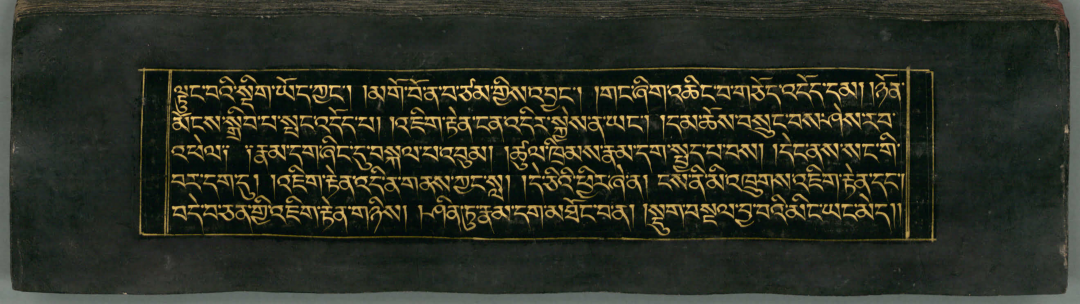 ལྟུང་བའི་སྡིག་ཡོད་ཀྱང་། །མགོ་བོན་བ་ཙམ་གྱིས་འབྱང་། །གང་ཞིག་འཆིང་བ་གཅོད་འདོད་དམ། །ཉོན་
མོངས་སྒྲིབ་པ་སྤང་འདོད་པ། །འཇིག་རྟེན་ངན་འདིར་སྐྱེས་ན་ཡང་། །དམ་ཆོས་བསྲུང་བས་ཤེས་རབ་
འཕེལ། །རྣམ་དག་ཞིང་དུ་བསྐལ་པ་འབུམ། །ཚུལ་ཁྲིམས་རྣམ་དག་སྤྱད་པ་བས། །དེང་ནས་སང་གི་
བར་དག་ཏུ། །འཇིག་རྟེན་འདི་ན་གནས་ཀྱང་སླ། །དེ་ཅིའི་ཕྱིར་ཞེ་ན། ངས་ནི་མི་འཁྲུགས་འཇིག་རྟེན་དང་
བདེ་བ་ཅན་གྱི་འཇིག་རྟེན་གཉིས། །ཤིན་ཏུ་རྣམ་དག་མཐོང་བན། །སྡུག་བསྔལ་བྱ་བའི་མིང་ཡང་མེད།།